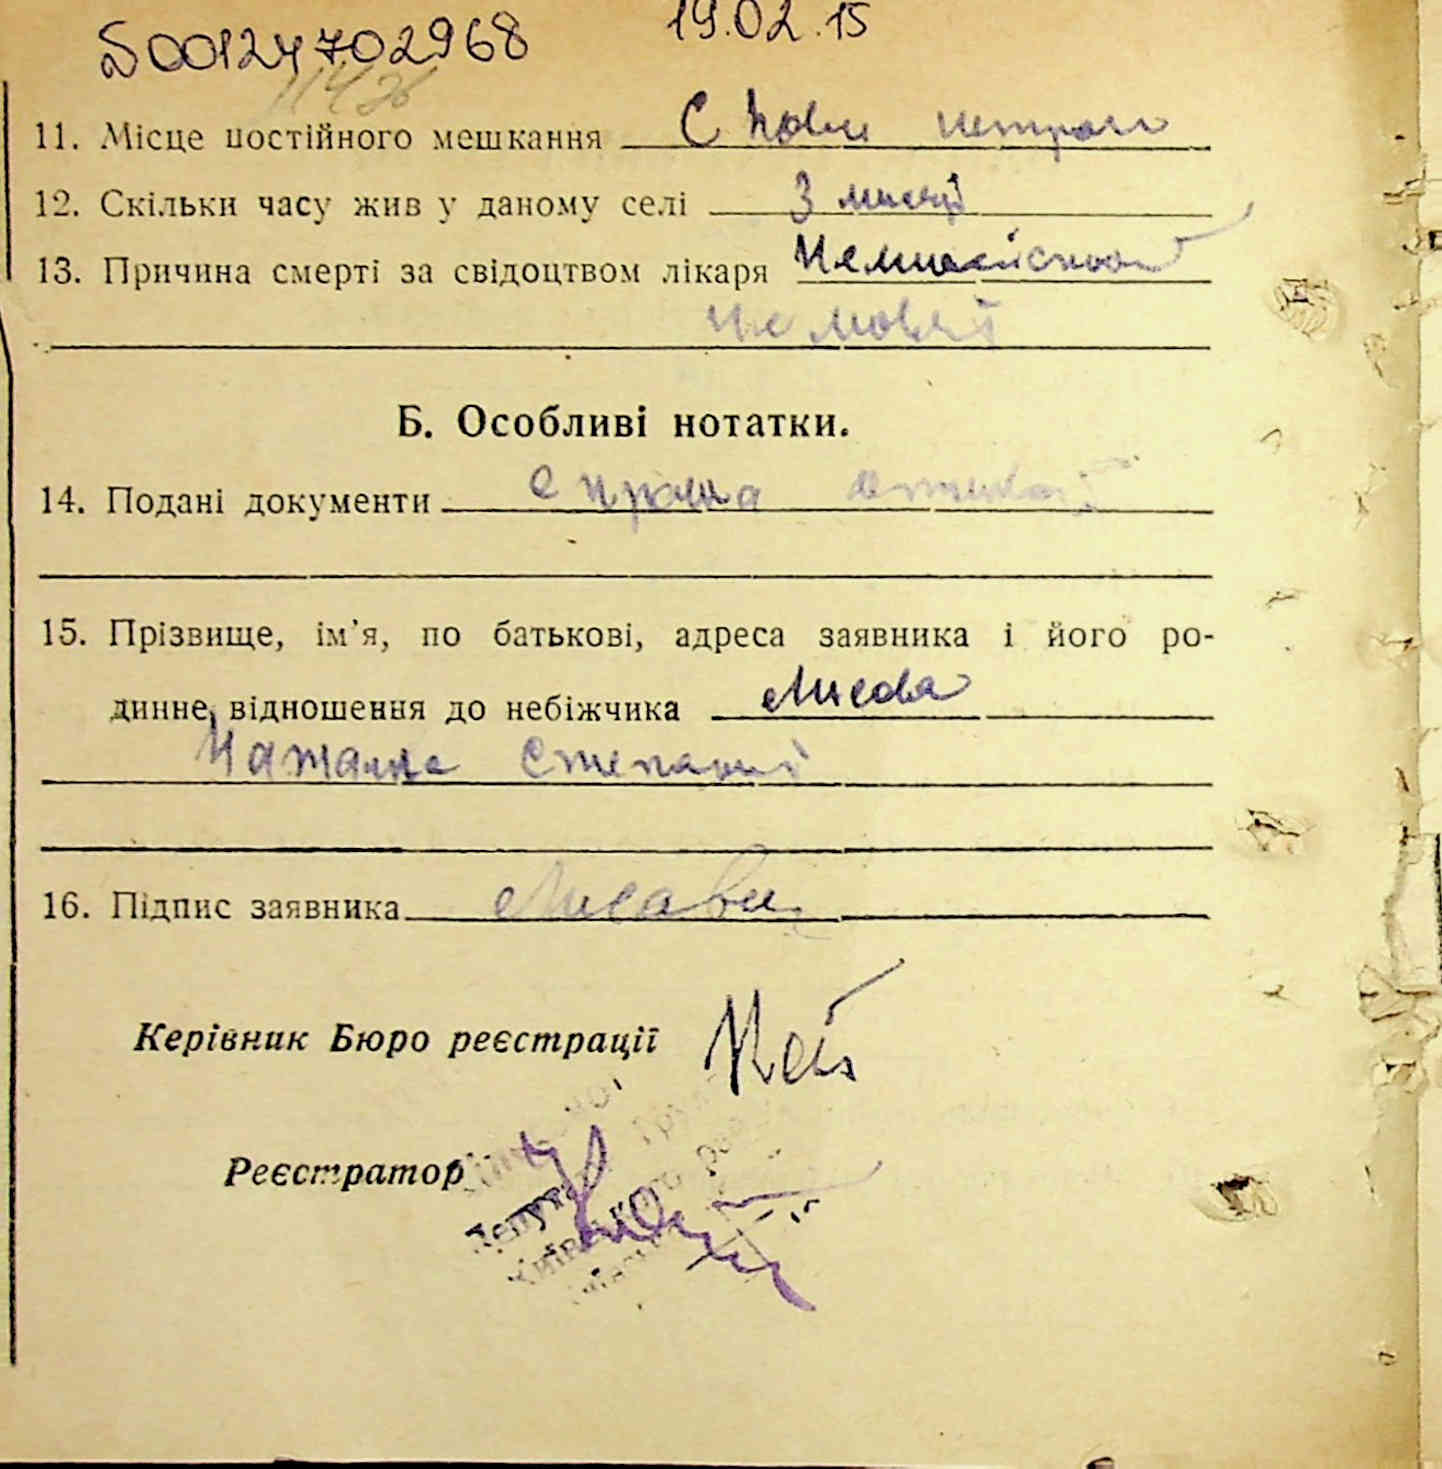 S00124702968 19.02.15
1142б
11. Місце постійного мешкання С Нови петровс
12. Скільки часу жив у даному селі 3 місяці
13. Причина смерті за свідоцтвом лікаря
немовлі
Б. Особливі нотатки.
14. Подані документи
15. Прізвище, ім'я, по батькові, адреса заявника і його ро-
динне, відношення до небіжчика Лисова
Наталка Степанів
16. Підпис заявника
Керівник Бюро реєстрації
Реєстратор